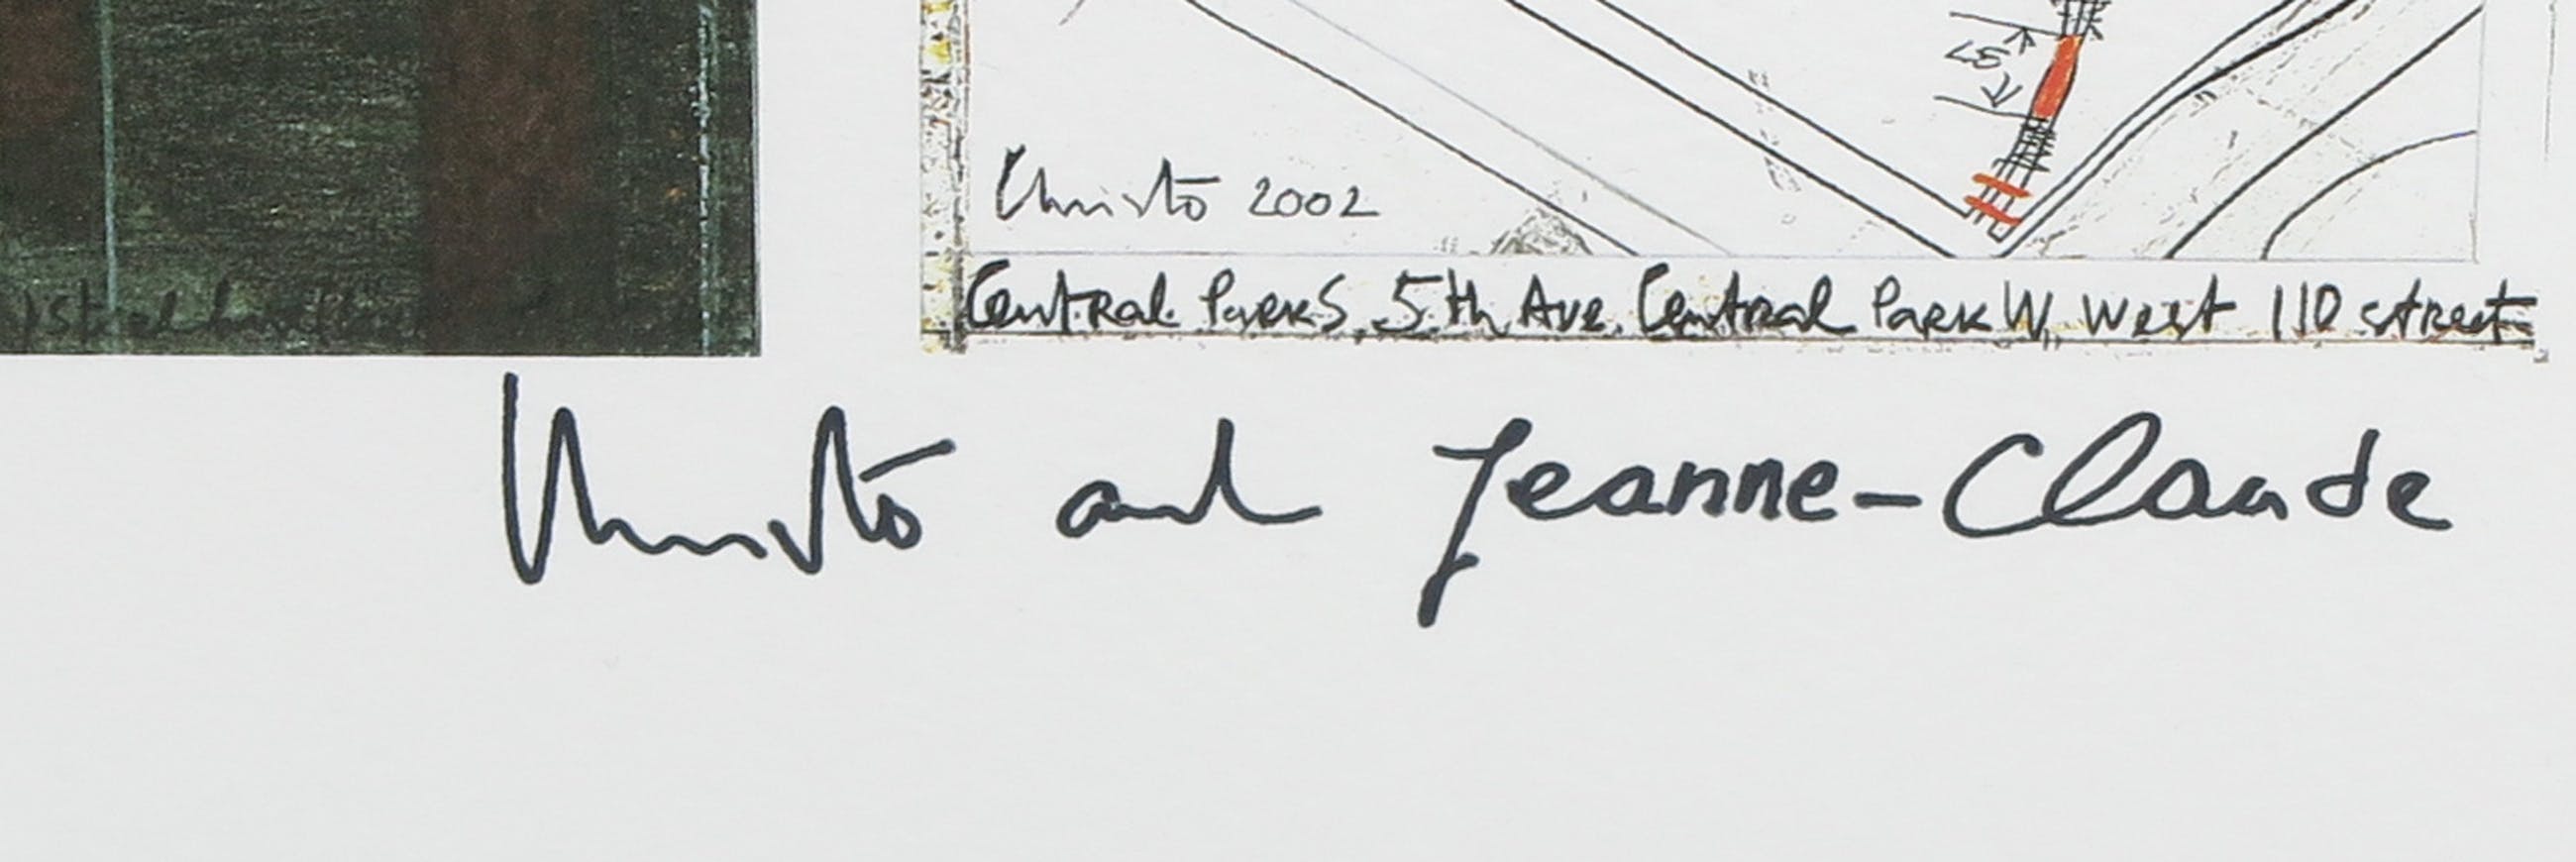 Christo 2002
Central Park S. 5th Ave. Central Park W. West 110 street
Christo and Jeanne-Claude